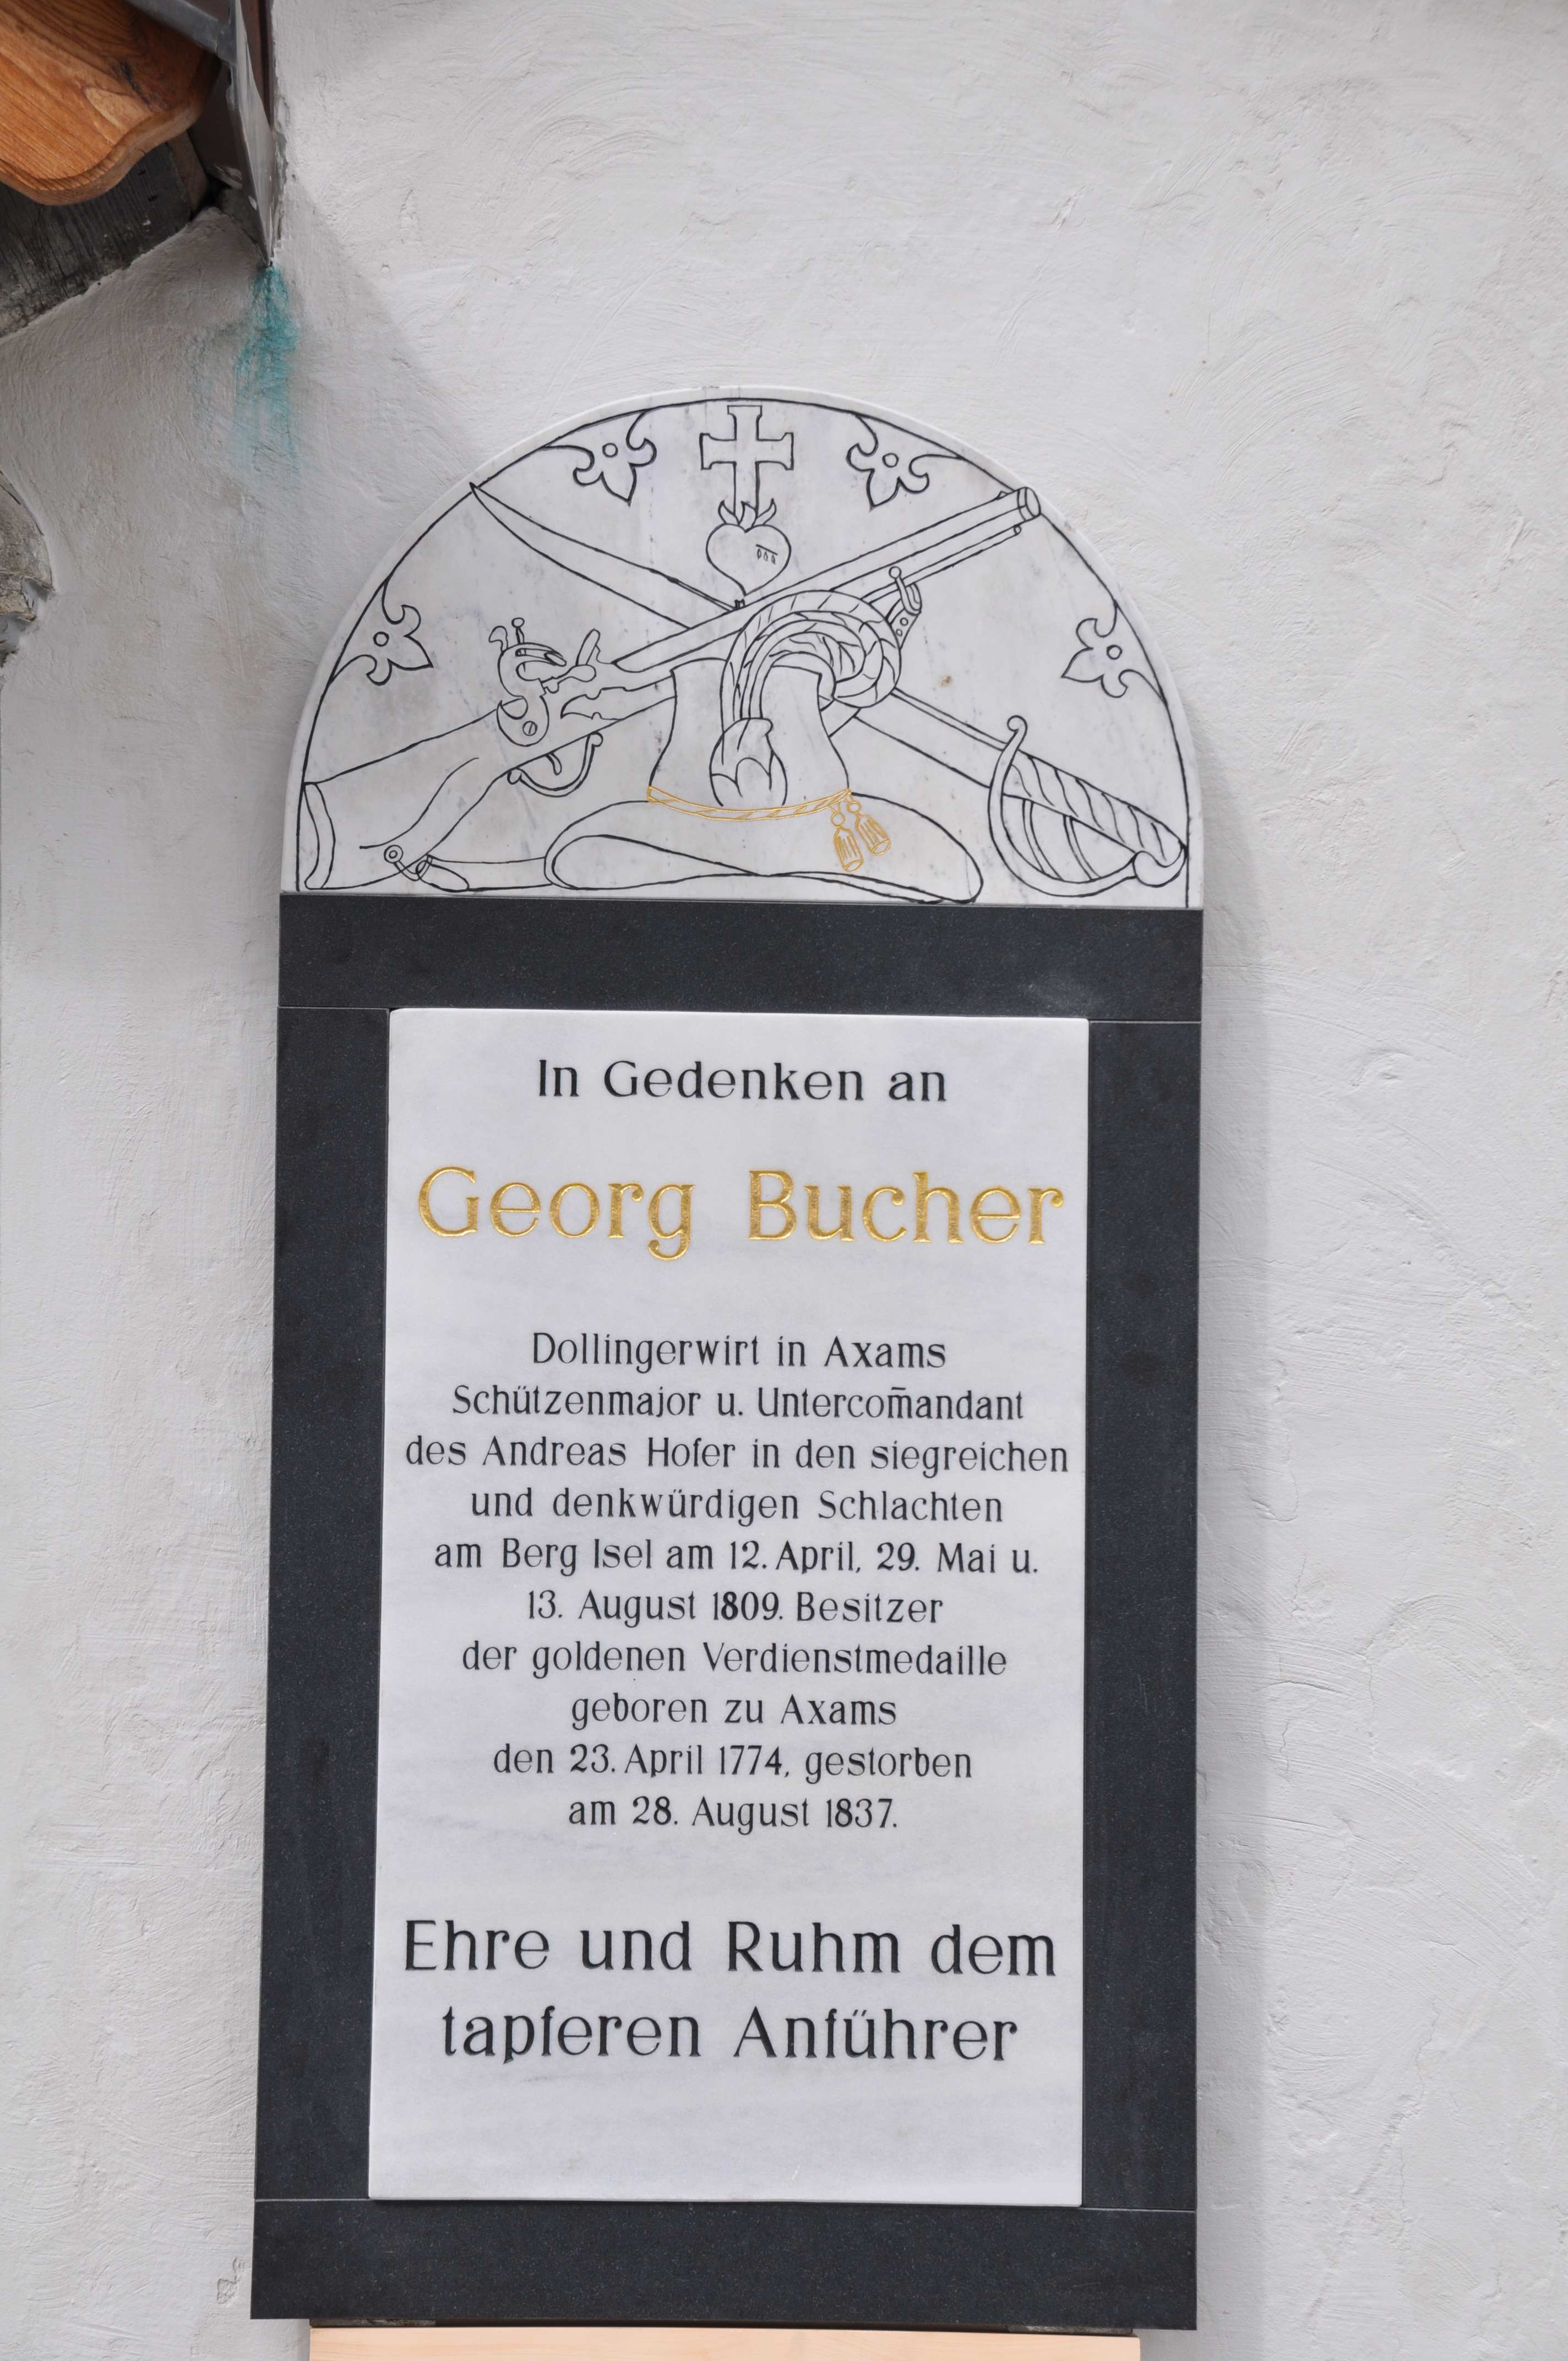 In Gedenken an
Georg Bucher
Dollingerwirt in Axams
Schützenmajor u. Untercom̄andant
des Andreas Hofer in den siegreichen
und denkwürdigen Schlachten
am Berg Isel am 12. April, 29. Mai u.
13. August 1809. Besitzer
der goldenen Verdienstmedaille
geboren zu Axams
den 23. April 1774, gestorben
am 28. August 1837.
Ehre und Ruhm dem
tapferen Anführer